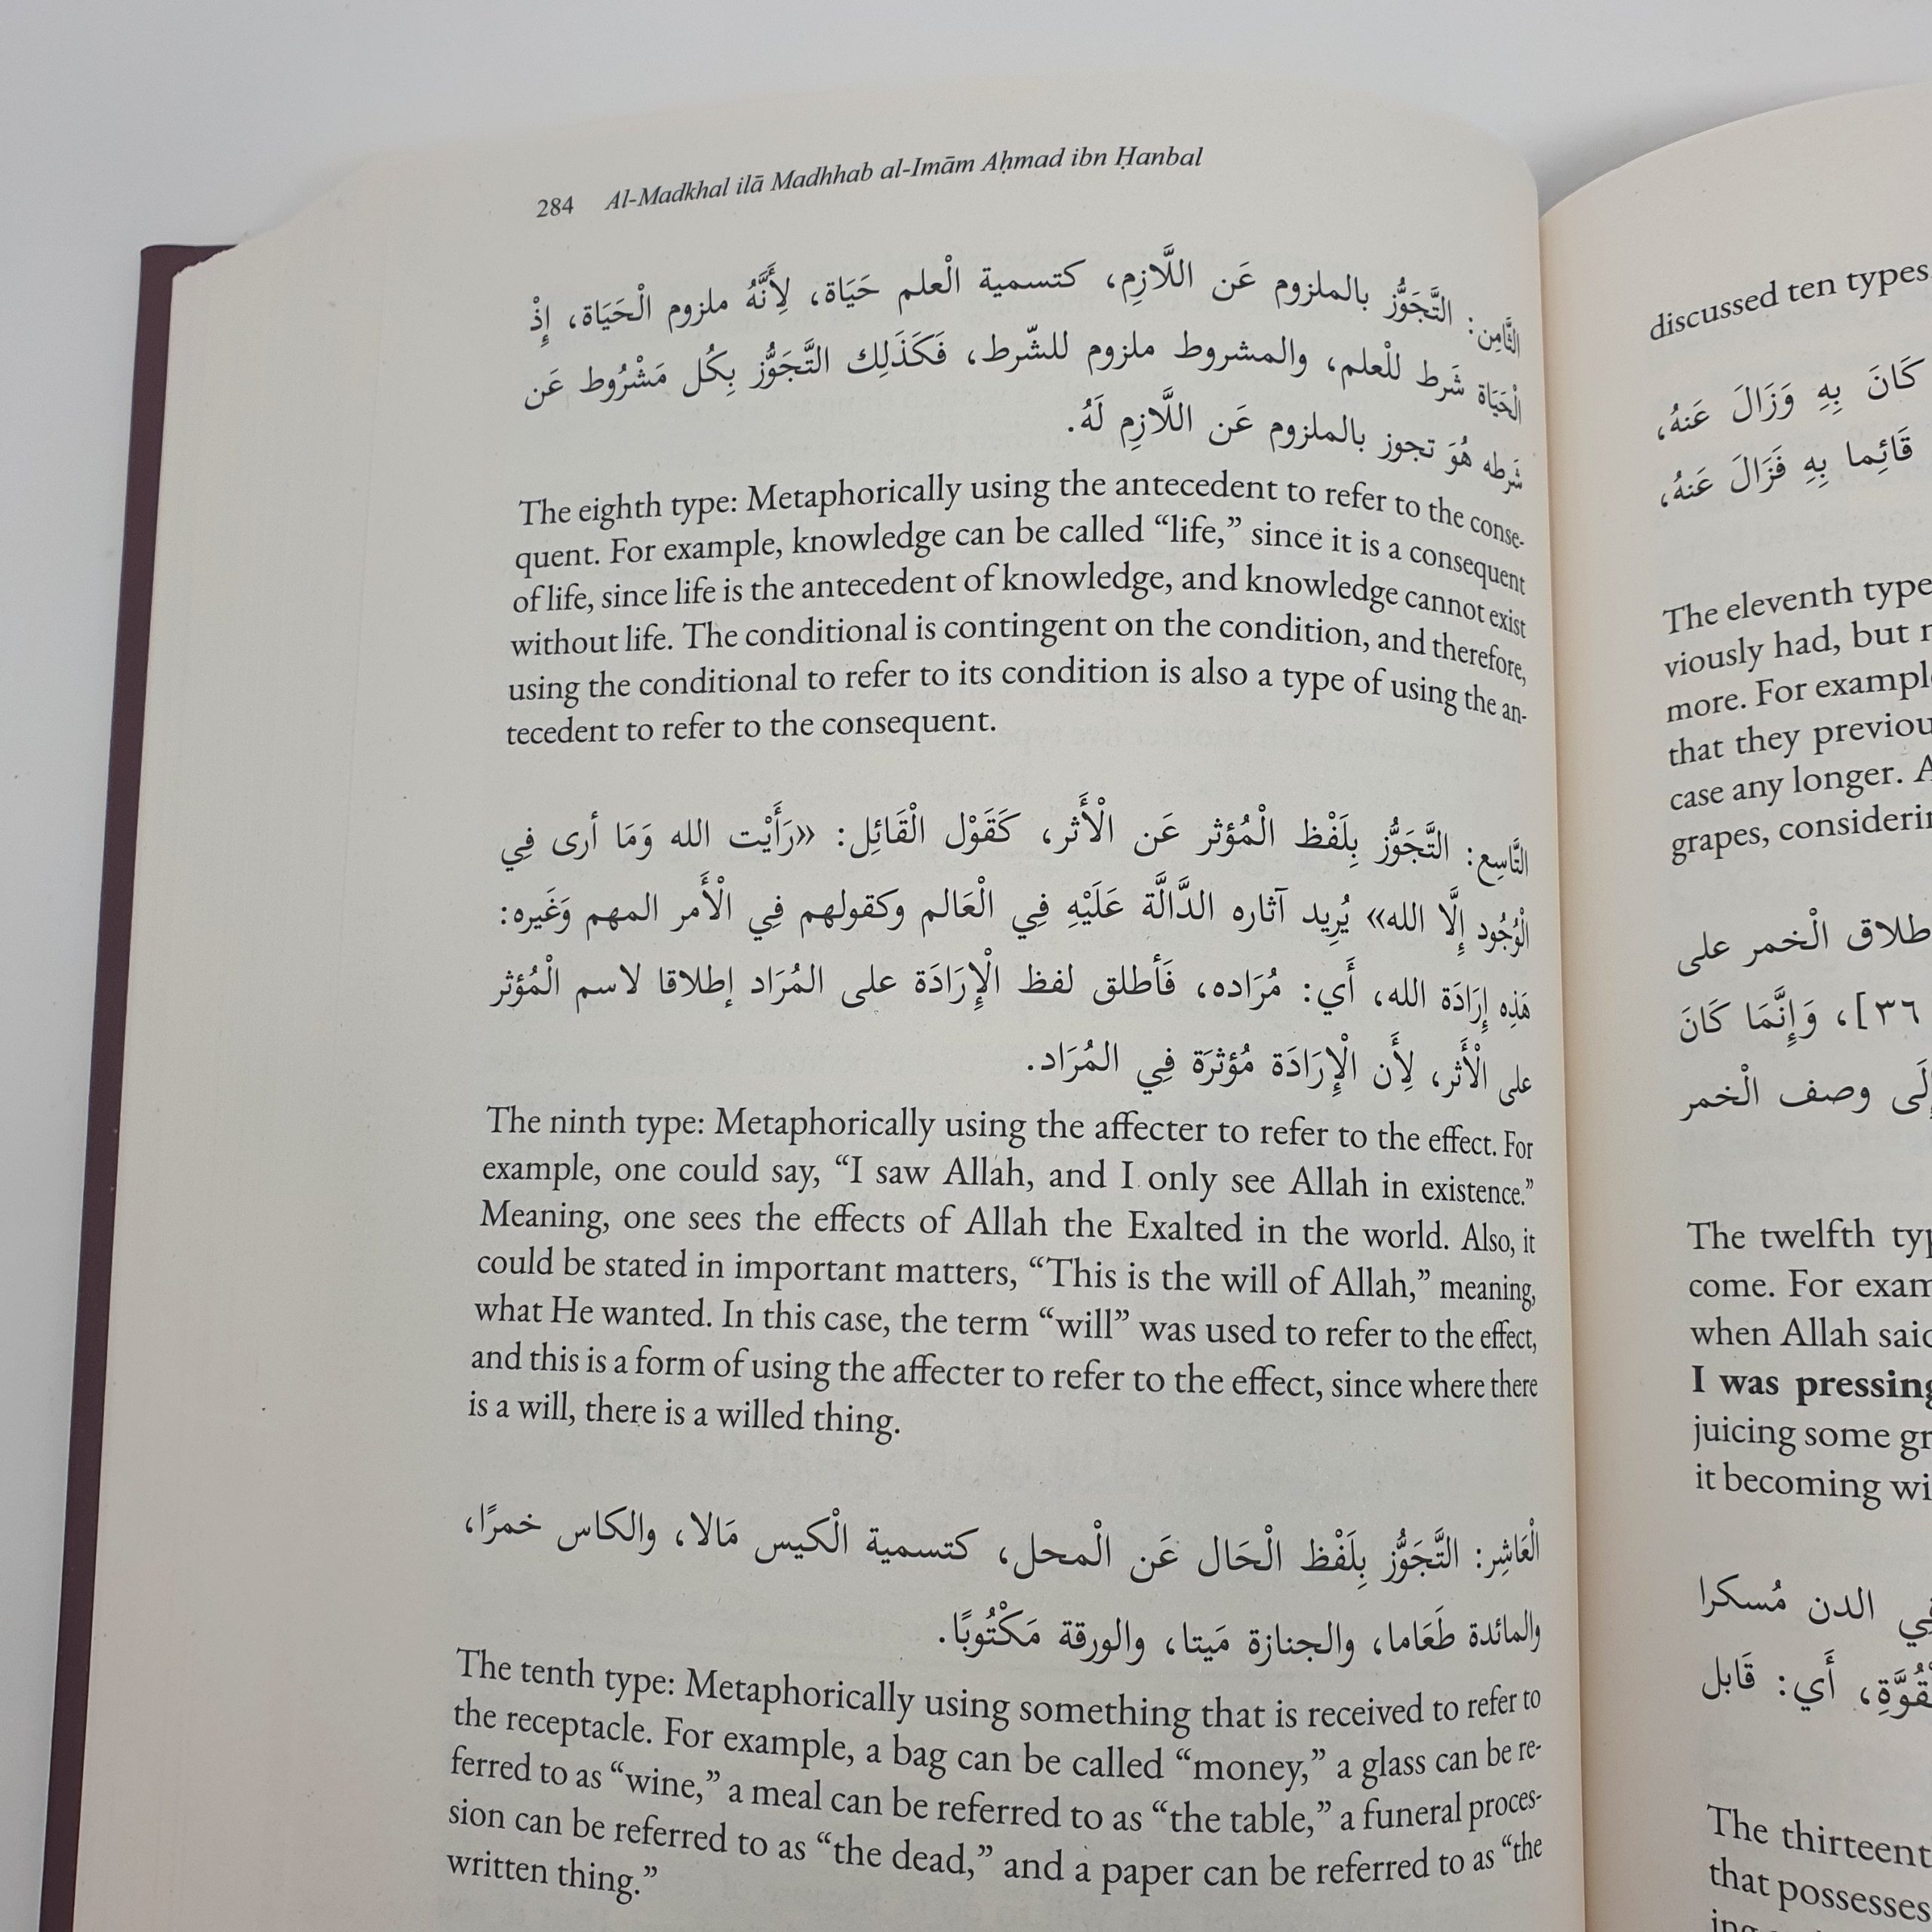 284 Al-Madkhal ilā Madhhab al-Imām Aḥmad ibn Ḥanbal
الثَّامِن: التَّجَوُّز بالملزوم عَن اللَّازِم، كتسمية الْعلم حَيَاة، لِأَنَّهُ ملزوم الْحَيَاة، إِذْ
الْحَيَاة شَرط للْعلم، والمشروط ملزوم للشّرط، فَكَذَلِك التَّجَوُّز بِكُل مَشْرُوط عَن
شَرطه هُوَ تجوز بالملزوم عَن اللَّازِم لَهُ.
The eighth type: Metaphorically using the antecedent to refer to the conse-
quent. For example, knowledge can be called “life,” since it is a consequent
of life, since life is the antecedent of knowledge, and knowledge cannot exist
without life. The conditional is contingent on the condition, and therefore,
using the conditional to refer to its condition is also a type of using the an-
tecedent to refer to the consequent.
التَّاسِع: التَّجَوُّز بِلَفْظ الْمُؤثر عَن الْأَثر، كَقَوْل الْقَائِل: «رَأَيْت الله وَمَا أرى فِي
الْوُجُود إِلَّا الله» يُرِيد آثاره الدَّالَّة عَلَيْهِ فِي الْعَالم وكقولهم فِي الْأَمر المهم وَغَيره:
هَذِه إِرَادَة الله، أَي: مُرَاده، فَأطلق لفظ الْإِرَادَة على المُرَاد إطلاقا لاسم الْمُؤثر
على الْأَثر، لِأَن الْإِرَادَة مُؤثرَة فِي المُرَاد.
The ninth type: Metaphorically using the affecter to refer to the effect. For
example, one could say, “I saw Allah, and I only see Allah in existence.”
Meaning, one sees the effects of Allah the Exalted in the world. Also, it
could be stated in important matters, “This is the will of Allah,” meaning,
what He wanted. In this case, the term “will” was used to refer to the effect,
and this is a form of using the affecter to refer to the effect, since where there
is a will, there is a willed thing.
الْعَاشِر: التَّجَوُّز بِلَفْظ الْحَال عَن الْمحل، كتسمية الْكيس مَالا، والكاس خمرًا،
والمائدة طَعَاما، والجنازة مَيتا، والورقة مَكْتُوبًا.
The tenth type: Metaphorically using something that is received to refer to
the receptacle. For example, a bag can be called “money,” a glass can be re-
ferred to as “wine,” a meal can be referred to as “the table,” a funeral proces-
sion can be referred to as “the dead,” and a paper can be referred to as “the
written thing.”
discussed ten types
كَانَ بِهِ وَزَالَ عَنهُ،
قَائِما بِهِ فَزَالَ عَنهُ،
The eleventh type
viously had, but
more. For example
that they
case any longer.
grapes,
الْخمر على
٣٦]، وَإِنَّمَا كَانَ
وصف الْخمر
The twelfth
come. For
when Allah
I was
juicing some
it becoming
الدن مُسكرا
أَي: قَابل
The
that possesses